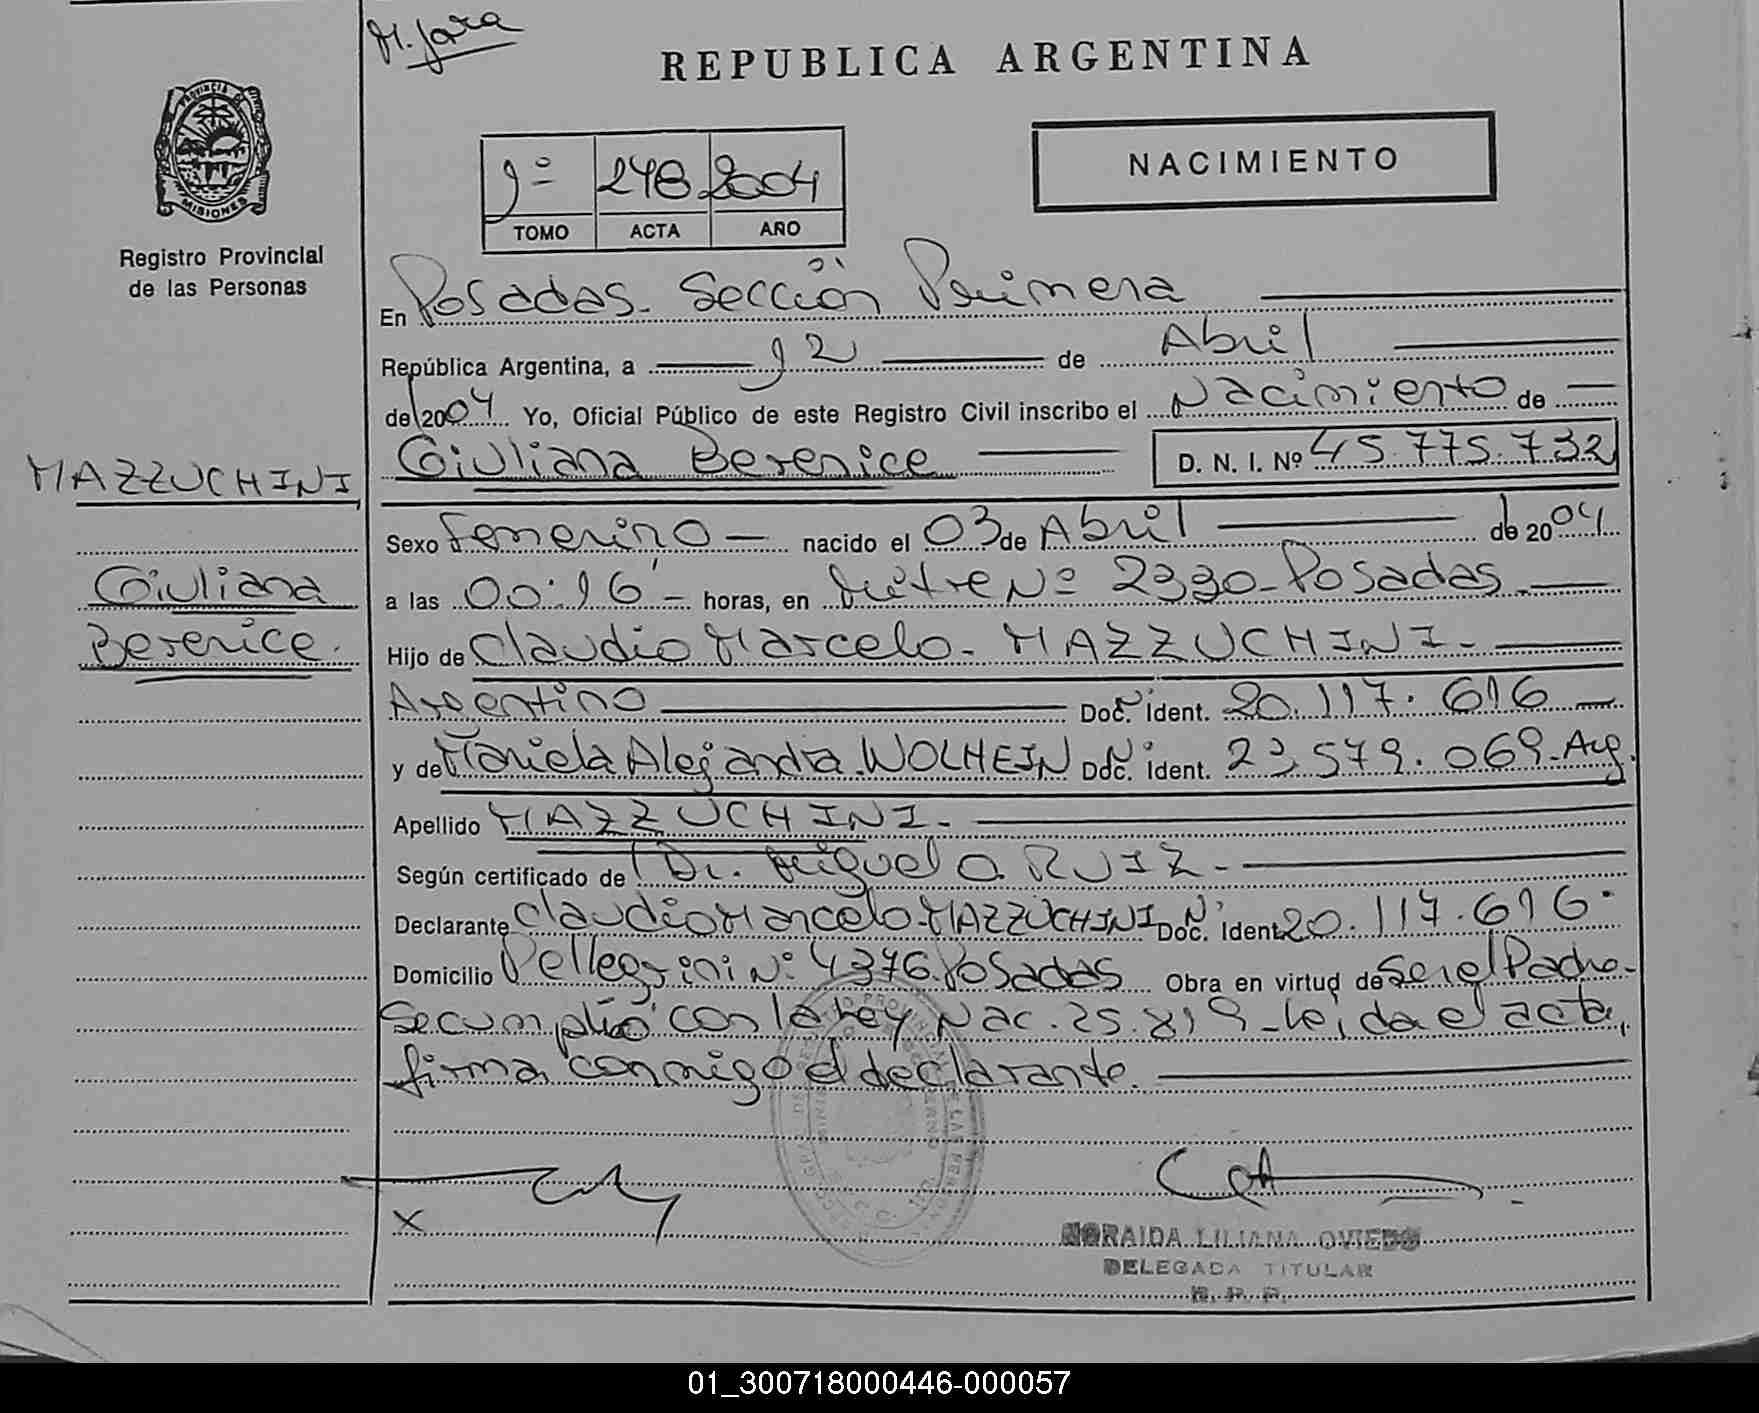 M. Jara
REPUBLICA ARGENTINA
PROVINCIA DE
MISIONES
Registro Provincial
de las Personas
1º 248 2004
TOMO ACTA AÑO
NACIMIENTO
En Posadas. Sección Primera
República Argentina, a 12 de Abril
de 2004 Yo, Oficial Público de este Registro Civil inscribo el Nacimiento de
Giuliana Berenice D. N. I. Nº 45.775.732
MAZZUCHINI
Sexo Femenino nacido el 03 de Abril de 2004
Giuliana
a las 00:16 horas, en Mitre Nº 2330 - Posadas.
Berenice.
Hijo de Claudio Marcelo - MAZZUCHINI -
Argentino Nº Doc. Ident. 20.117.616
y de Mariela Alejandra. WOLHEIN Nº Doc. Ident. 23.579.069 - Arg.
Apellido MAZZUCHINI.
Según certificado de Dr. Miguel A. RUIZ -
Declarante Claudio Marcelo - MAZZUCHINI Nº Doc. Ident 20.117.616
Domicilio Pellegrini Nº 4376. Posadas Obra en virtud de Ser el Padre -
Se cumplió con la Ley Nac. 25.819 - Leída el acta,
firma conmigo el declarante.
X
NORAIDA LILIANA OVIEDO
DELEGADA TITULAR
R. P. P.
01_300718000446-000057